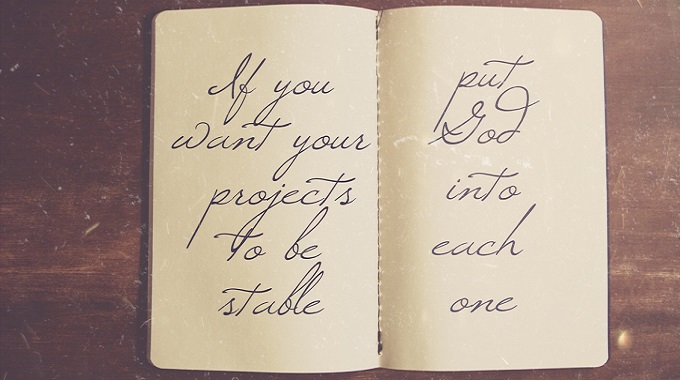 If you
want your
projects
to be
stable
put
God
into
each
one